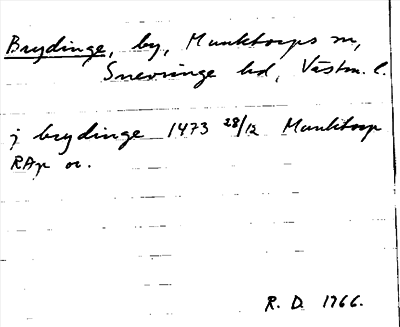 Brydinge, by, Munktorps sn,
Snevringe hd, Västm. l.
j brydinge 1473 28/12 Munktorp
RAp or.
R. D. 1966.